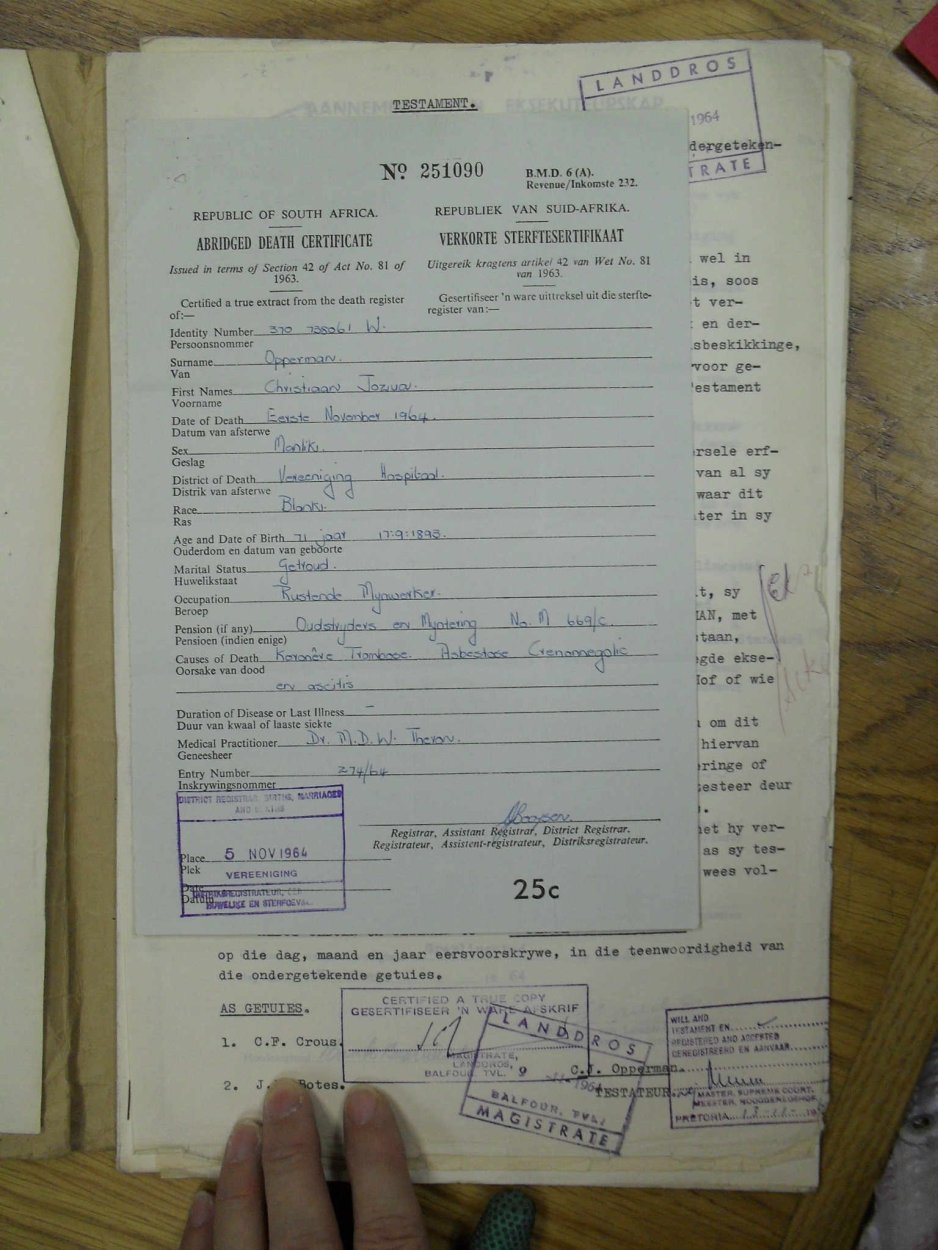 TESTAMENT.
LANDDROS
1964
dergeteken-
TRATE
Nº 251090
B.M.D. 6 (A).
Revenue/Inkomste 232.
REPUBLIC OF SOUTH AFRICA.
REPUBLIEK VAN SUID-AFRIKA.
ABRIDGED DEATH CERTIFICATE
VERKORTE STERFTESERTIFIKAAT
Issued in terms of Section 42 of Act No. 81 of
1963.
Uitgereik kragtens artikel 42 van Wet No. 81
van 1963.
Certified a true extract from the death register
of:—
Gesertifiseer 'n ware uittreksel uit die sterfte-
register van:—
Identity Number 370 738061 W.
Persoonsnommer
Surname Opperman.
Van
First Names Christiaan Jozua.
Voorname
Date of Death Eerste November 1964.
Datum van afsterwe
Sex Manlik.
Geslag
District of Death Vereeniging Hospitaal.
Distrik van afsterwe
Race Blank.
Ras
Age and Date of Birth 71 jaar 17:9:1893.
Ouderdom en datum van geboorte
Marital Status Getroud.
Huwelikstaat
Occupation Rustende Mynwerker.
Beroep
Pension (if any) Oudstryders en Myntering No. M 669/c.
Pensioen (indien enige)
Causes of Death Koronêre Trombose. Asbestose
Oorsake van dood
en ascitis
Duration of Disease or Last Illness –
Duur van kwaal of laaste siekte
Medical Practitioner Dr. M.D.W. Theron.
Geneesheer
Entry Number 274/64
Inskrywingsnommer
DISTRICT REGISTRAR BIRTHS, MARRIAGES
Place 5 NOV 1964
Plek
VEREENIGING
Date
Datum
HUWELIKE EN
Registrar, Assistant Registrar, District Registrar.
Registrateur, Assistent-registrateur, Distriksregistrateur.
25c
wel in
is, soos
t ver-
en der-
sbeskikkinge,
voor ge-
estament
rsele erf-
van al sy
waar dit
ter in sy
t, sy
MAN, met
staan,
gde ekse-
Hof of wie
om dit
hiervan
ringe of
esteer deur
het hy ver-
as sy tes-
wees vol-
op die dag, maand en jaar eersvoorskrywe, in die teenwoordigheid van
die ondergetekende getuies.
AS GETUIES.
CERTIFIED A TRUE COPY
GESERTIFISEER 'N WARE AFSKRIF
MAGISTRATE,
LANDDROS,
BALFOUR, TVL.
1. C.F. Crous.
2. J. Botes.
LANDDROS
9
1964
BALFOUR, TVL.
MAGISTRATE
C.J. Opperman.
TESTATEUR.
WILL AND
TESTAMENT EN
REGISTERED AND ACCEPTED
GEREGISTREER EN AANVAAR
MASTER, SUPREME COURT,
MEESTER, HOOGGEREGSHOF
PRETORIA